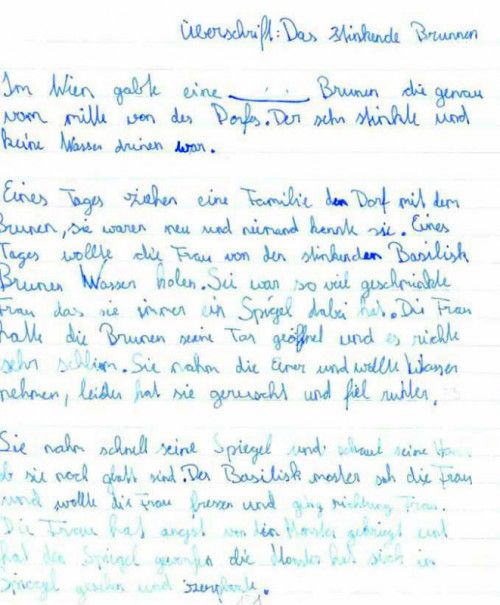 Überschrift: Das stinkende Brunnen
Im Wien gabte eine Brunen die genau
vom mitte von des Dorfs. Der sehr stinkte und
keine Wasser drinen war.
Eines Tages ziehen eine Familie den Dorf mit dem
Brunen, sie waren neu und niemand kennte sie. Eines
Tages wollte die Frau von den stinkenden Basilisk
Brunen Wasser holen. Sei war so viel geschminkte
Frau das sie immer ein Spigel dabei hat. Die Frau
hatte die Brunen seine Tor geöffnet und es richte
sehr schlim. Sie nahm die Eimer und wollte Wasser
nehmen, leider hat sie geruscht und fiel runter.
Sie nahm schnell seine Spiegel und schaut seine
ob sie noch glatt sind. Der Basilisk monster sah die Frau
und wollte die Frau fressen und ging richtung Frau.
Die Frau hat angst von den Monster gekriegt und
hat den Spiegel geworfen die Monster hat sich in
Spiegel gesehen und